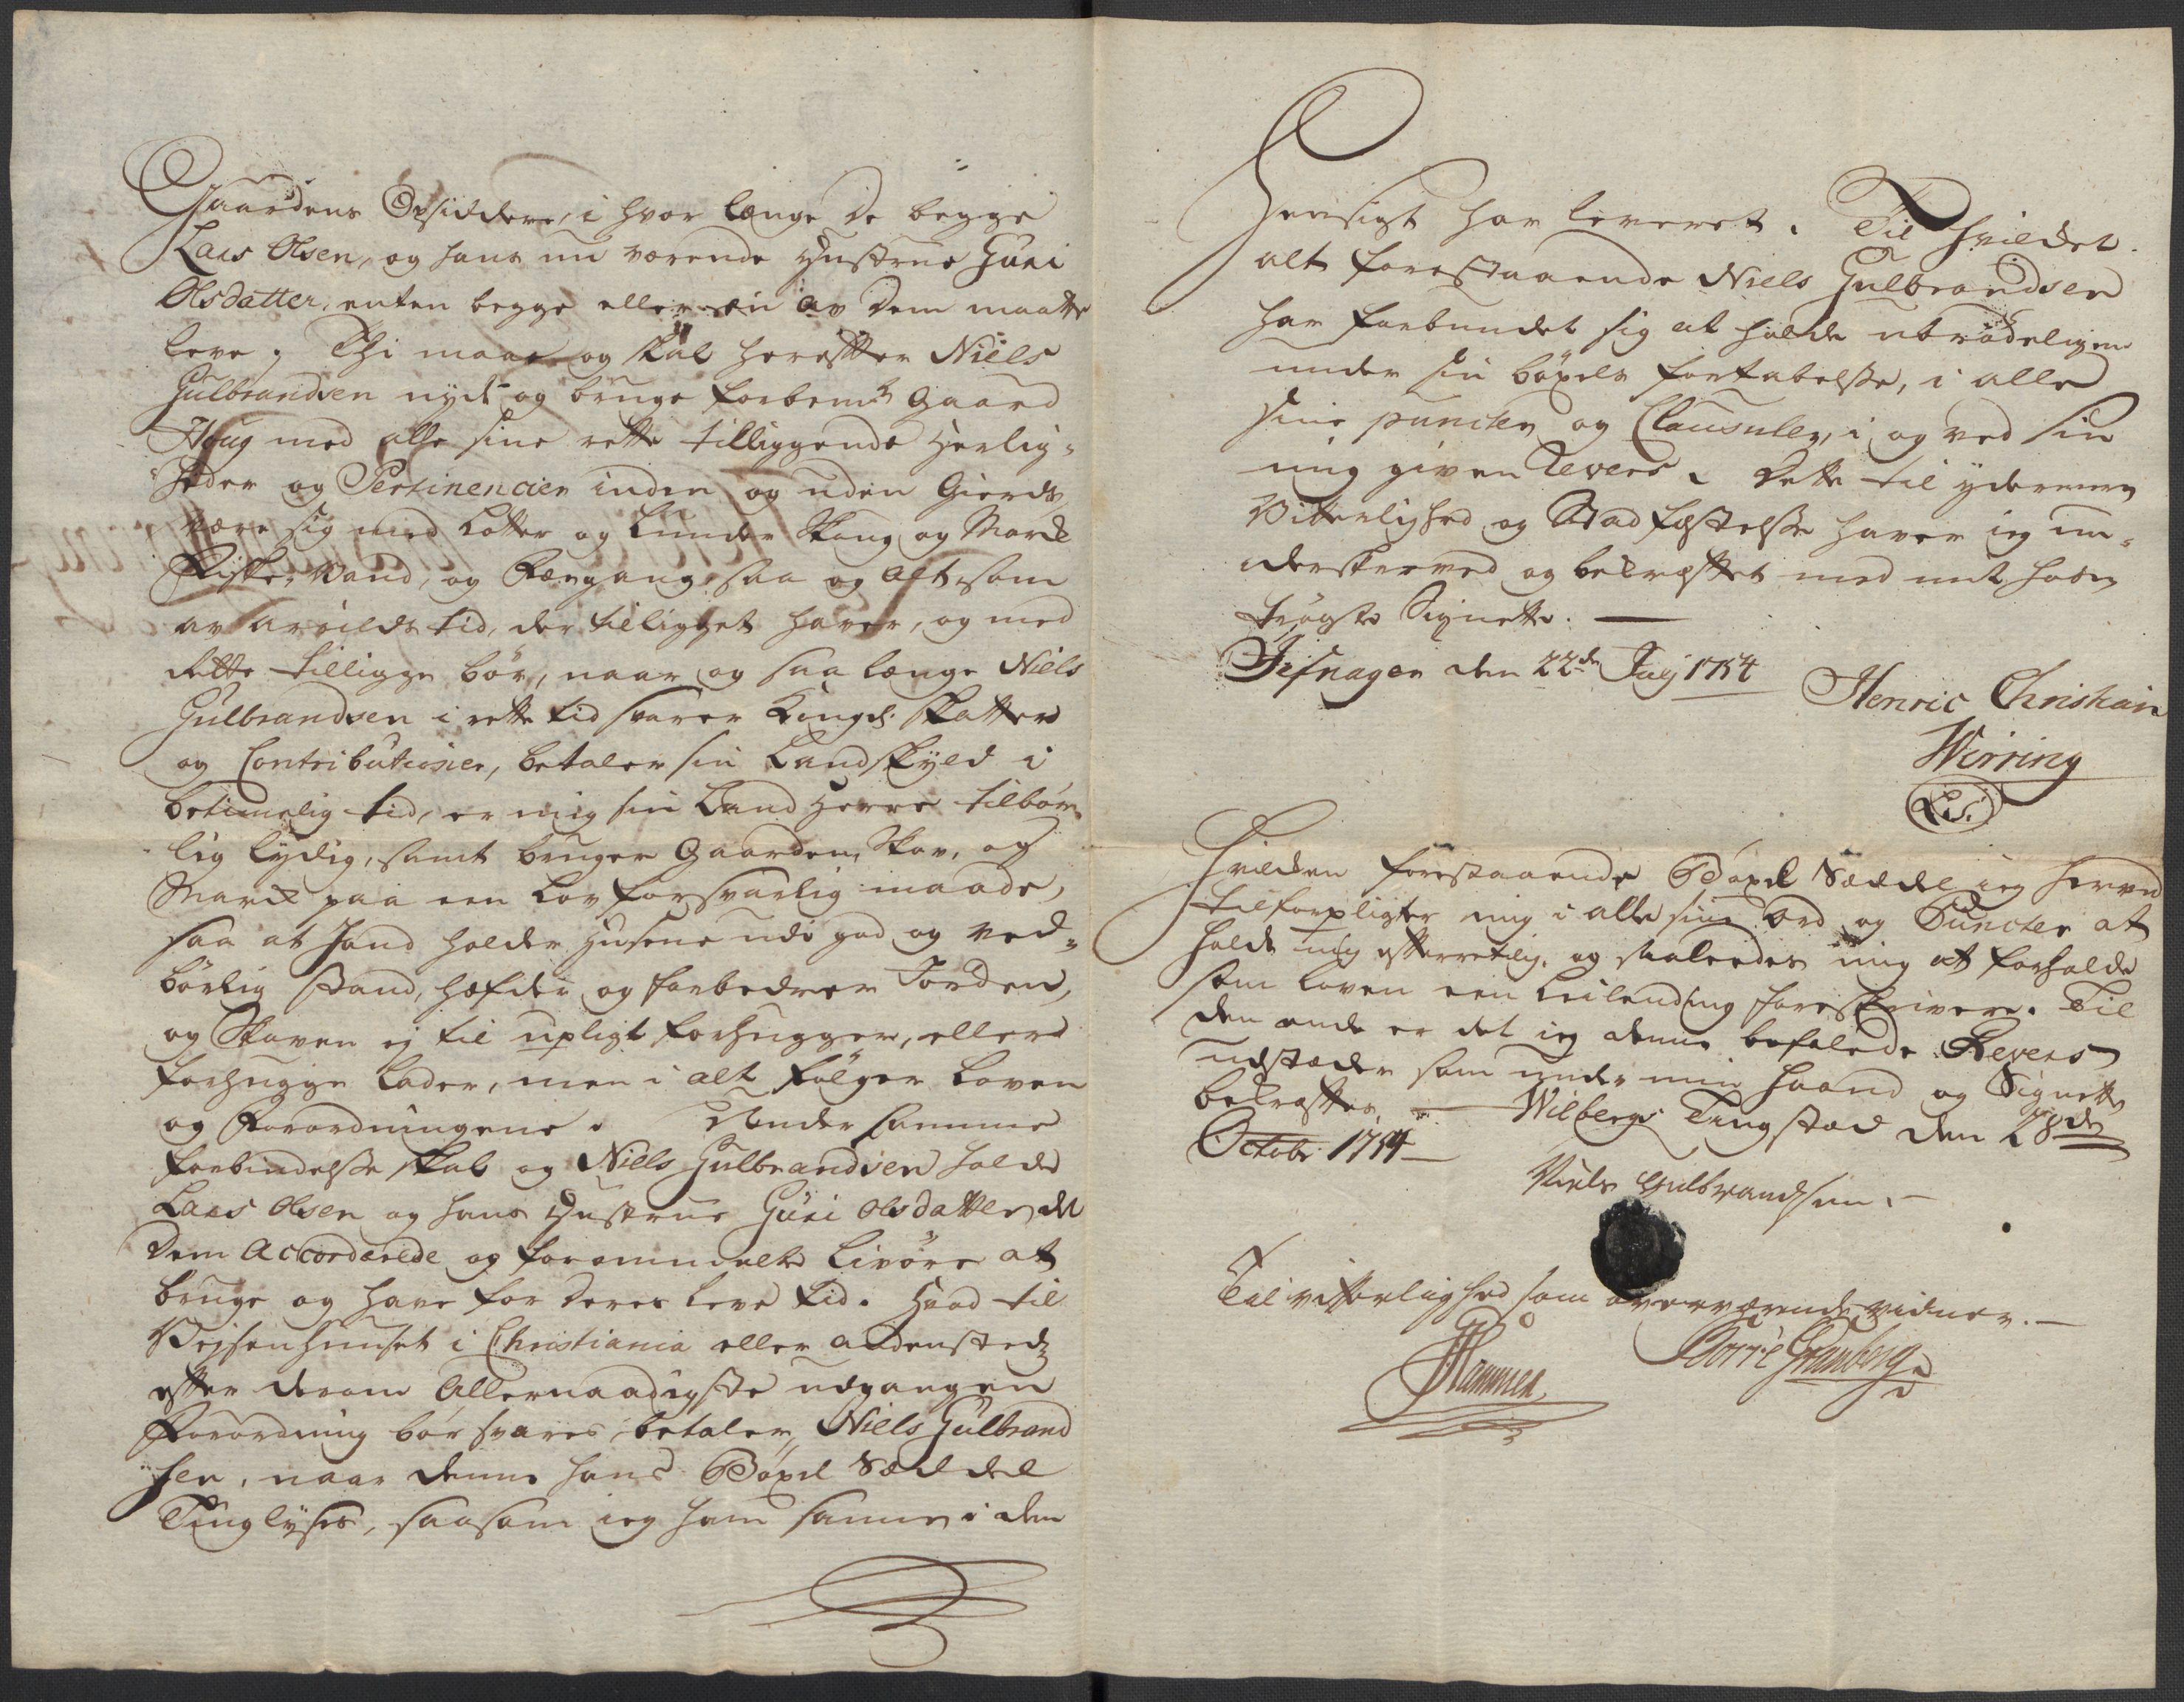 Gaardens Opsiddere, i hvor længe De begge
Lars Olsen, og hans nu værende Hustrue Guri
Olsdatter, enten begge eller een av dem maatte
leve; Thi maae og skal herefter Niels
Gulbrandsen nyde og bruge forbemte Gaard
Houg med alle sine rette tilliggende Herlig-
heder og Pertinencier inden og uden Gierds
være sig med Lotter og Lunder Skoug og Mark
Fiske, Vand, og Færgang, saa og Alt, som
av Arrilds tid, der tilligget haver, og med
rette tilligge bør, naar og saa længe Niels
Gulbrandsen i rette tid svarer Kongl. Skatter
og Contributioner, betaler sin Landskyld i
betimelig tid, er mig sin Land Herre tilbør-
lig lydig, samt bruger Gaarden, Skov, og
Mark paa een Lovforsvarlig maade,
saa at hand holder Husene udi god og ved-
børlig Stand, hæfder og forbedrer Jorden,
og Skoven ej til upligt forhugger, eller
forhugge lader, men i alt følger Loven
og Forordningene. Under samme
forbindelse skal og Niels Gulbrandsen holde
Lars Olsen og hans Hustrue Guri Olsdatter det
dem Accorderede og forommelte Livøre at
bruge og have for deres leve tid. Hvad til
Vejsenhuuset i Christiania eller andensteds
efter derom Allernaadigste udgangen
Forordning bør svares, betaler, Niels Gulbrand
sen, naar denne hans Bøxel Sæddel
Tinglyses, saasom ieg ham samme i den
Hensigt har leveret. Til hvilcket
alt forestaaende Niels Gulbrandsen
har forbundet sig at holde ubrødeligen
under sin bøxels fortabelse, i alle
sine puncter og Clausuler, i og ved sin
mig given Revers. Dette til ydermere
Vitterlighed og Stadfæstelse haver ieg un-
derskreved og bekræftet med mit hos-
trøgte Signette.
Jesnager den 22de Julj 1754
Henric Christian
Wirring
L.S.
Hvilcken forestaaende Bøxel Sæddel ieg herved
tilforpligter mig i alle sine ord og Puncter at
holde mig efterrettelig, og saaledes mig at forholde
som Loven een Leilending foreskriver. Til
den ende er det ieg denne befalede Revers
udstæder som under min haand og Signette
bekræftes. Wilbergs Tingstad den 28de
Octobr 1754
Niels Gulbrandsen.
Til vitterlighed som overværende vidner.
Hammer
Torre Granberg